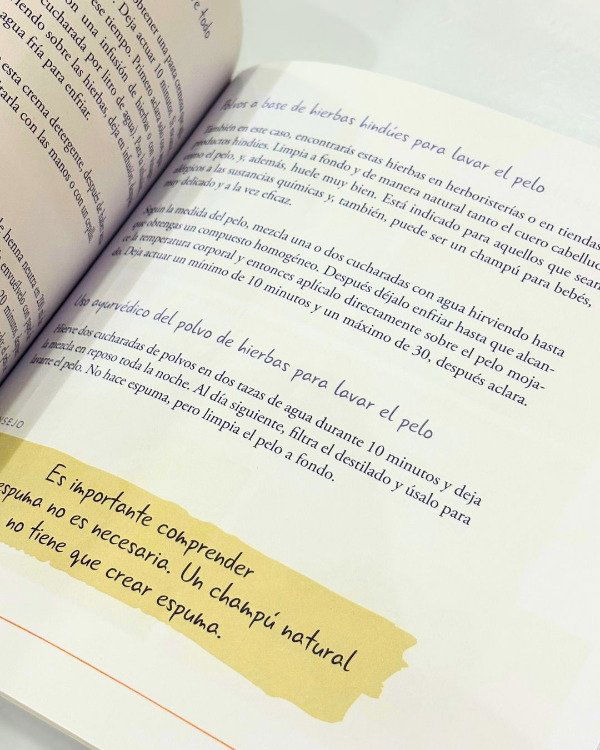 re todo
obtener una pasta cremosa
. Deja actuar 10 minutos. S
ese tiempo. Primero aclara sólo
con una infusión de hierbas
cucharada por litro de agua). Para
iendo sobre las hierbas, deja en infusión
agua fría para enfriar.
esta crema detergente, después de
rarla con las manos o con un
Henna neutra en
envuélvelo con
20 minutos,
Polvos a base de hierbas hindúes para lavar el pelo
También en este caso, encontrarás estas hierbas en herboristerías o en tiendas
productos hindúes. Limpia a fondo y de manera natural tanto el cuero cabelludo
como el pelo, y, además, huele muy bien. Está indicado para aquellos que sean
alérgicos a las sustancias químicas y, también, puede ser un champú para bebés,
muy delicado y a la vez eficaz.
Según la medida del pelo, mezcla una o dos cucharadas con agua hirviendo hasta
que obtengas un compuesto homogéneo. Después déjalo enfriar hasta que alcan-
ce la temperatura corporal y entonces aplícalo directamente sobre el pelo moja-
do. Deja actuar un mínimo de 10 minutos y un máximo de 30, después aclara.
Uso ayurvédico del polvo de hierbas para lavar el pelo
Hierve dos cucharadas de polvos en dos tazas de agua durante 10 minutos y deja
la mezcla en reposo toda la noche. Al día siguiente, filtra el destilado y úsalo para
lavarte el pelo. No hace espuma, pero limpia el pelo a fondo.
NSEJO
Es importante comprender
espuma no es necesaria. Un champú natural
no tiene que crear espuma.